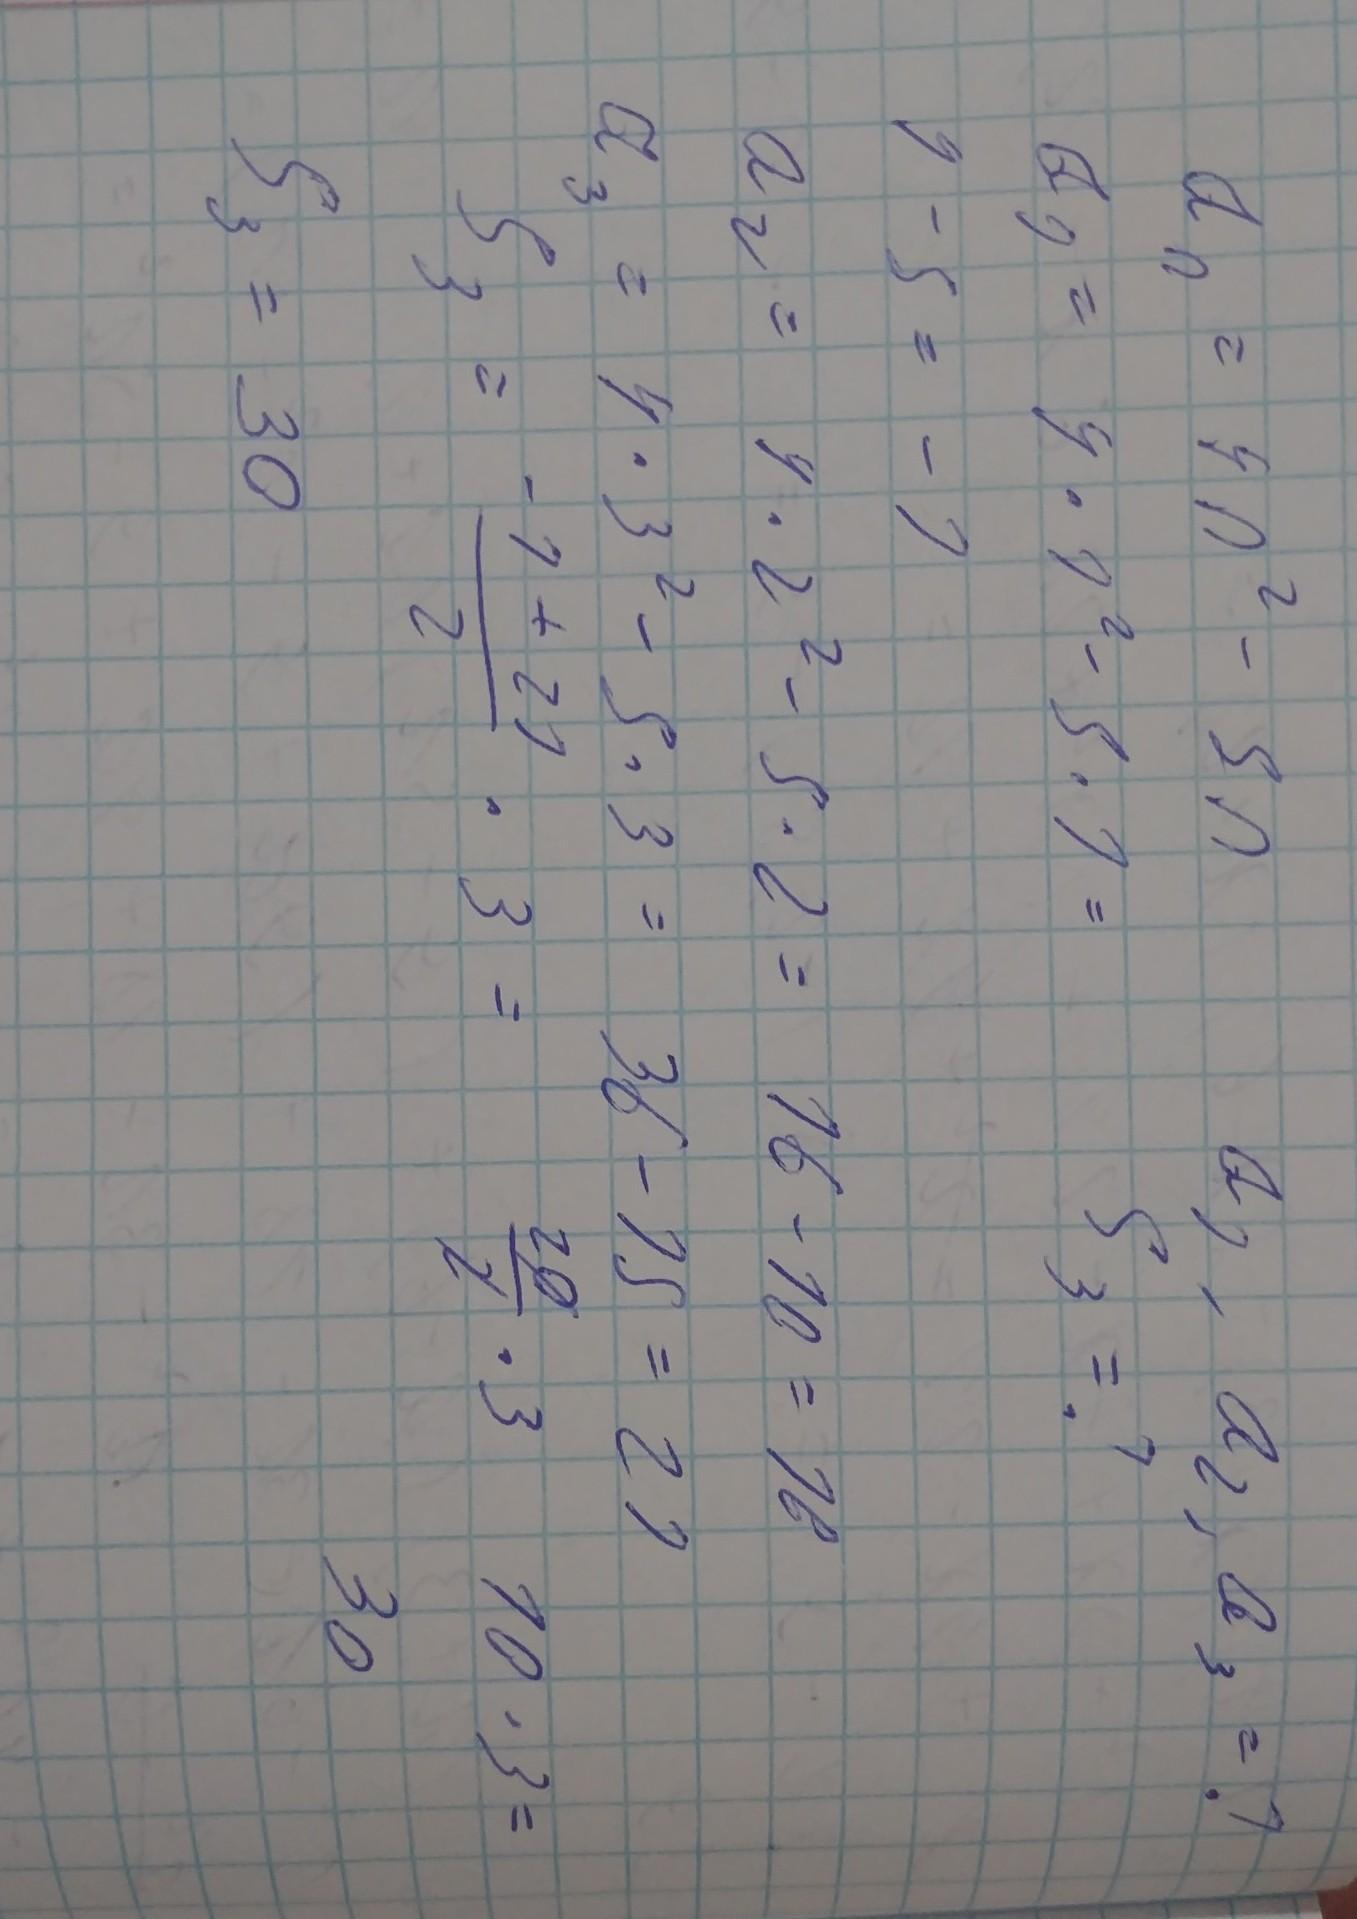 a₁, a₂, a₃ = ?
aₙ = 4n² - 5n
S₃ = ?
a₁ = 4 · 1² - 5 · 1 =
4 - 5 = -1
a₂ = 4 · 2² - 5 · 2 = 16 - 10 = 16
a₃ = 4 · 3² - 5 · 3 = 36 - 15 = 21
S₃ = (-1 + 21)/2 · 3 = 20/2 · 3 10 · 3 =
30
S₃ = 30